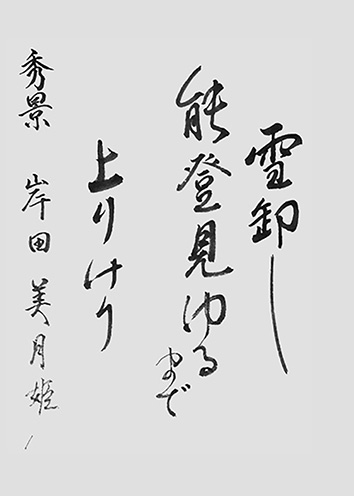 雪卸し
能登見ゆるまで
上りけり
秀景 岸田美月姫